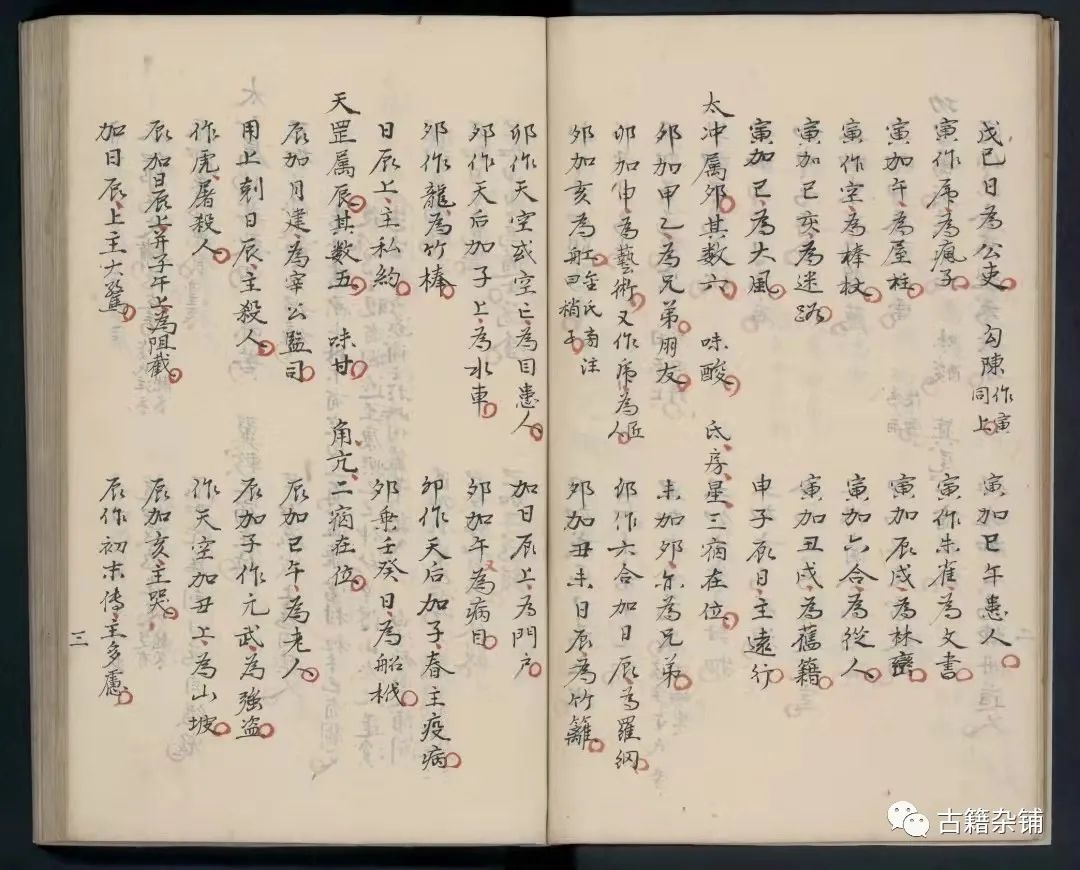 戊巳日為公吏 勾陳作寅同上 寅加巳午患人
寅作乕為瘋子 寅作朱雀為文書
寅加午為屋柱 寅加辰戌為林巒
寅作空為棒杖 寅加六合為從人
寅加巳亥為迷路 寅加丑戌為舊籍
寅加巳為大風 申子辰日主遠行
太冲属夘其数六 味酸 氐房星三宿在位
夘加甲乙為兄弟朋友 未加夘亦為兄弟
卯加申為藝術又作乕為匠人 卯作六合加日辰為羅網
夘加亥為舡金氏旁注曰梢子 夘加丑未日辰為竹籬
卯作天空或空亡為目患人 加日辰上為門戶
夘作天后加子上為水車 夘加午為病目
夘作龍為竹棒 卯作天后加子春主疫病
日辰上主私約 夘乗壬癸日為船栰
天罡属辰其数五 味甘 角亢二宿在位
辰加月建為宰公監司 辰加巳午為老人
用上剋日辰主殺人 辰加子作元武為強盗
作虎屠殺人 作天空加丑上為山坡
辰加日辰上并子午上為阻截 辰加亥主哭
加日辰上主大驚 辰作初末傳主多慮
三
古籍杂铺